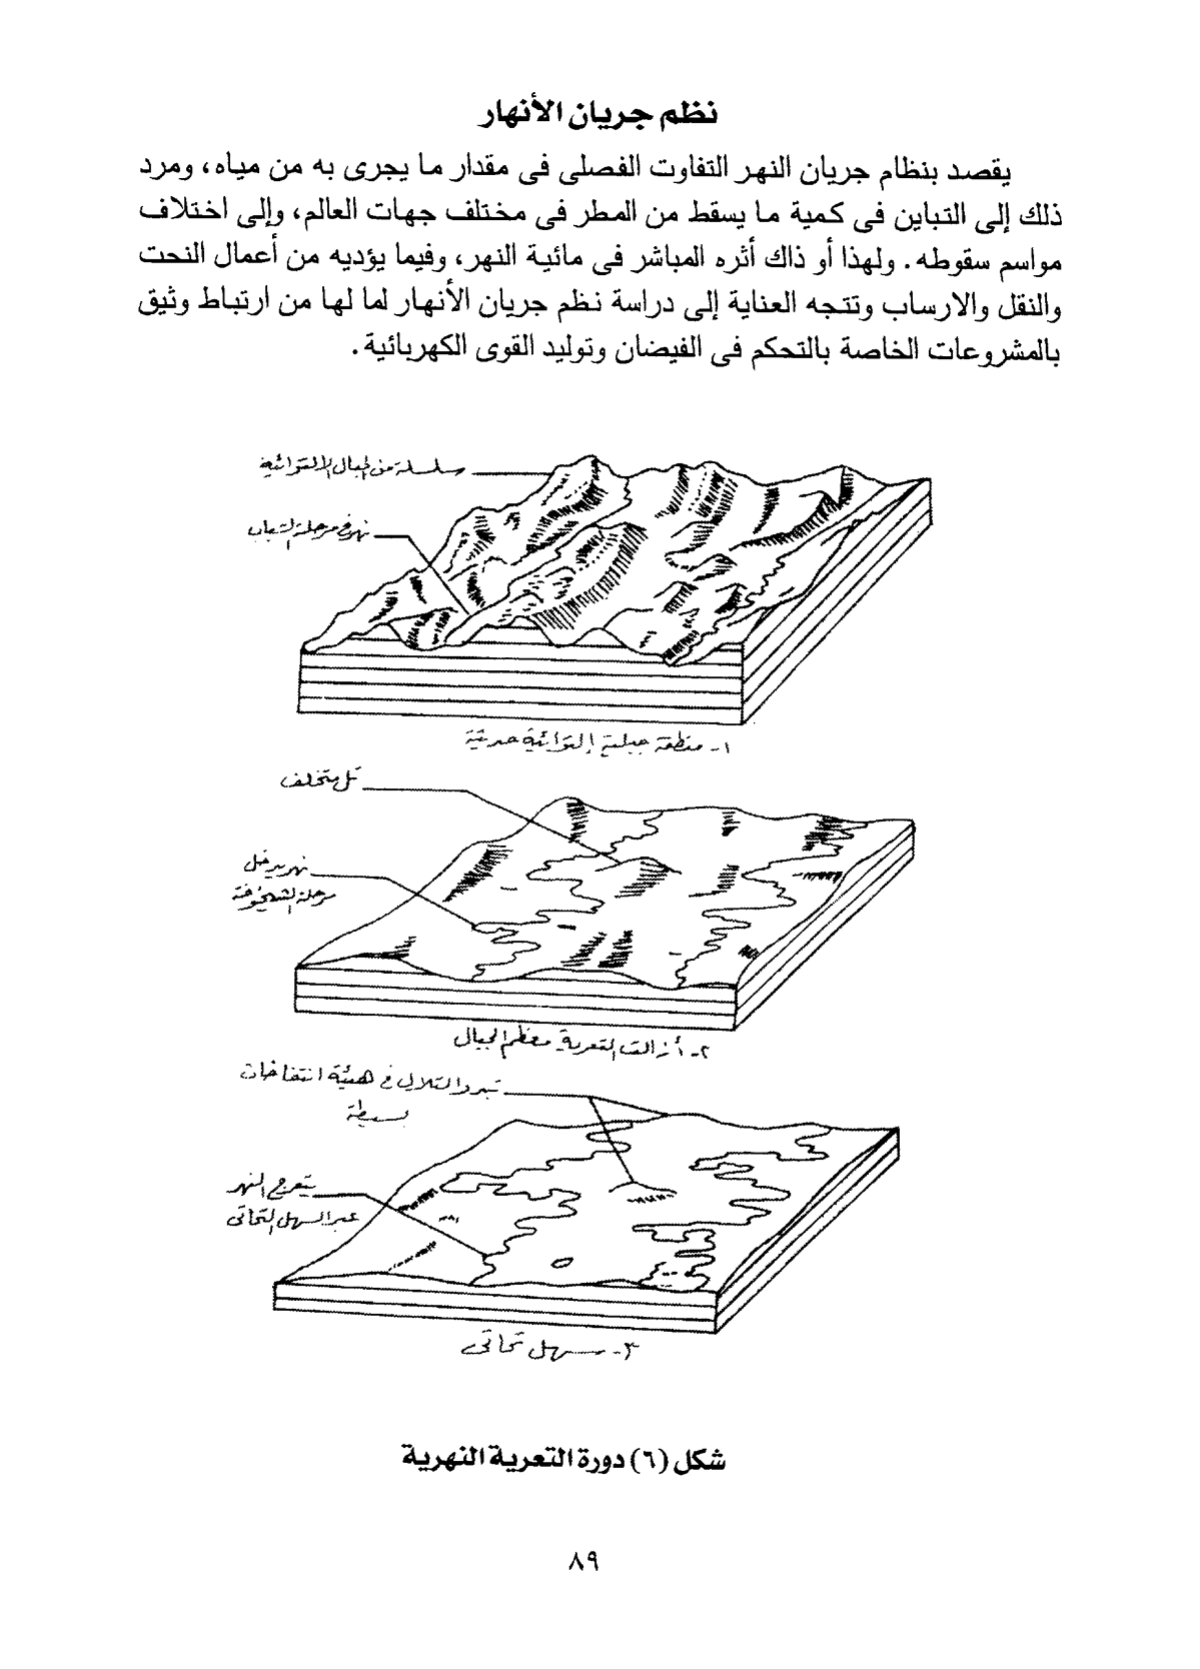 نظم جريان الأنهار
يقصد بنظام جريان النهر التفاوت الفصلى فى مقدار ما يجرى به من مياه، ومرد
ذلك إلى التباين فى كمية ما يسقط من المطر فى مختلف جهات العالم، وإلى اختلاف
مواسم سقوطه. ولهذا أو ذاك أثره المباشر فى مائية النهر، وفيما يؤديه من أعمال النحت
والنقل والارساب وتتجه العناية إلى دراسة نظم جريان الأنهار لما لها من ارتباط وثيق
بالمشروعات الخاصة بالتحكم فى الفيضان وتوليد القوى الكهربائية.
سلسلة من الجبال الالتوائية
نهر فى مرحلة الشباب
١- منطقة جبلية إلتوائية حديثة
تل متخلف
نهر يدخل
مرحلة الشيخوخة
٢- أزالت التعرية معظم الجبال
تبدو التلال فى هيئة انتفاخات
بسيطة
يتعرج النهر
عبر السهل التحاتى
٣- سهل تحاتى
شكل (٦) دورة التعرية النهرية
٨٩